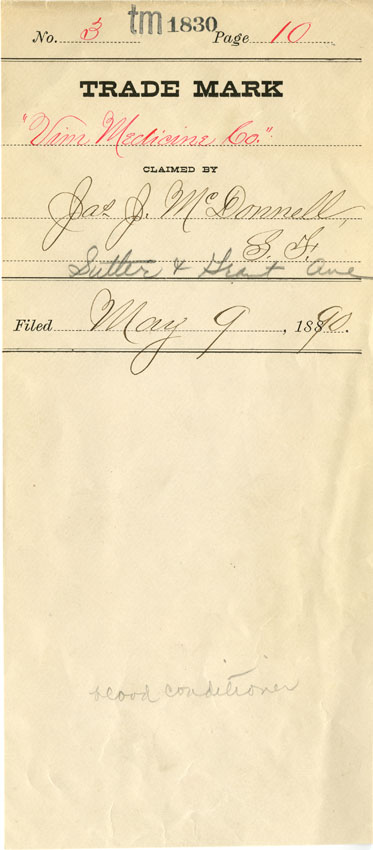 tm 1830
No. 3 Page 10
TRADE MARK
"Vim Medicine Co."
CLAIMED BY
Jas. J. McDonnell,
S. F.
Sutter & Grant Ave
Filed May 9, 1890.
blood conditioner